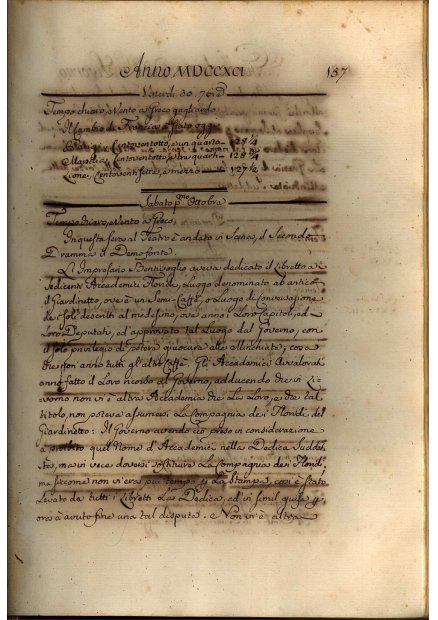 Anno MDCCXCI 157
Venerdì 30. 7bre
Tempo chiaro, e Vento a Greco gagliardo
Il Cambio di Francia è stato oggi
Parigi, Centoventotto, e un quarto 128 1/4
Marsilia, Centoventotto, e tre quarti 128 3/4
Lione, Centoventisette, e mezzo 127 1/2
Sabato pmo Ottobre
Tempo chiaro, e Vento a Greco.
In questa sera al Teatro è andato in Scena, il Secondo
Dramma il Demofonte.
L'Impresario Bentivoglio aveva dedicato il Libretto a
sedicenti Accademici Floridi, Luogo denominato ab antico
il Giardinetto, ove è un Semi-Caffè, o Luogo di Conversazione
de Soli descritti al medesimo, ove anno i Loro Capitoli, ed
Loro Deputati, ed approvato tal Luogo dal Governo, con
il Solo privilegio di potere giuocare alle Minchiate, cosa
che non anno tutti gl'altri Caffè. Gli Accademici Avvalorati
anno fatto il Loro ricorso al Governo, adducendo che in Li-
vorno non vi è altra Accademia che La Loro, e che tal
titolo, non poteva assumersi La Compagnia dei Floridi del
Giardinetto: Il Governo avendo ciò preso in considerazione
à proibito quel Nome d'Accademici nella Dedica Suddet-
ta, ma in vece doversi sostituire La Compagnia dei Floridi,
ma siccome non vi era più tempo p La Stampa, così è stato
Levato da tutti i Libretti La Dedica, ed in simil guisa p
ora à avuto fine una tal disputa. e Non vi è altra